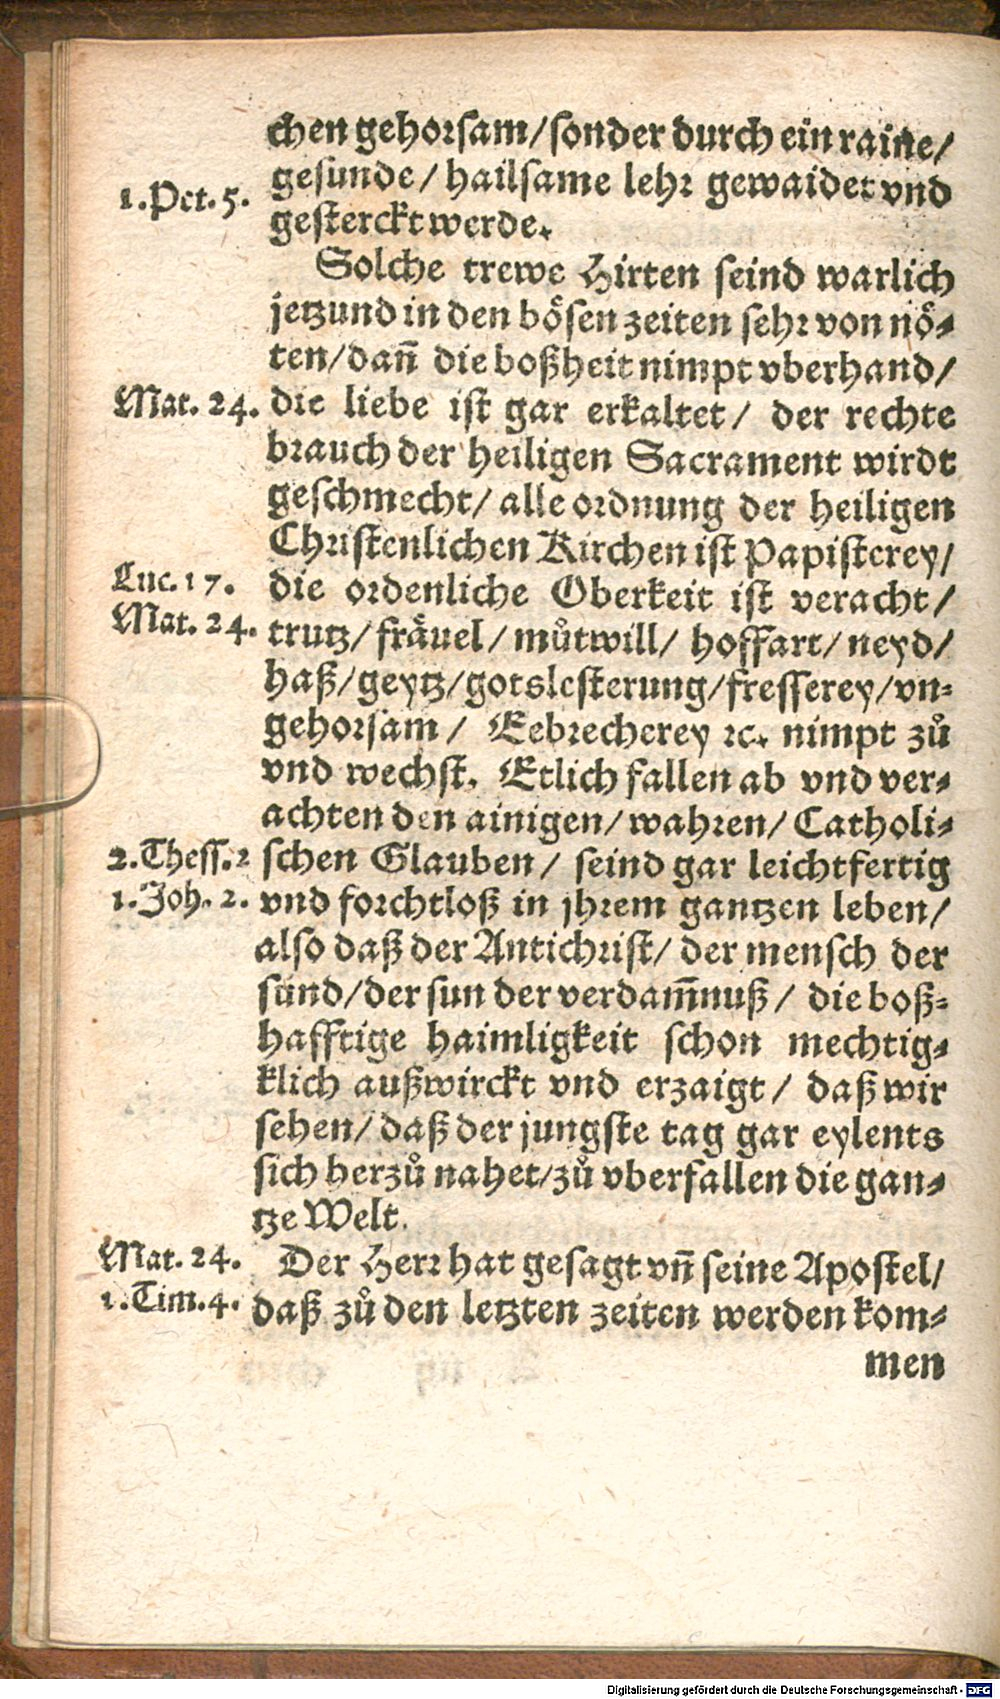 chen gehorsam/sonder durch ein raine/
gesunde/ hailsame lehr gewaidet vnd
1. Pet. 5.
gesterckt werde.
Solche trewe Hirten seind warlich
jetzund in den bösen zeiten sehr von nö-
ten/dañ die boßheit nimpt vberhand/
Mat. 24. die liebe ist gar erkaltet/ der rechte
brauch der heiligen Sacrament wirdt
geschmecht/ alle ordnung der heiligen
Christenlichen Kirchen ist Papisterey/
Luc. 17. die ordenliche Oberkeit ist veracht/
Mat. 24. trutz/ fräuel/ můtwill/ hoffart/ neyd/
haß/geytz/gotslesterung/fresserey/vn-
gehorsam/ Eebrecherey ꝛc. nimpt zů
vnd wechst. Etlich fallen ab vnd ver-
achten den ainigen/wahren/ Catholi-
2. Thess. 2 schen Glauben/ seind gar leichtfertig
1. Joh. 2. vnd forchtloß in jhrem gantzen leben/
also daß der Antichrist/ der mensch der
sünd/der sun der verdam̃nuß/ die boß-
hafftige haimligkeit schon mechtig-
klich außwirckt vnd erzaigt/ daß wir
sehen/daß der jungste tag gar eylents
sich herzů nahet/zů vberfallen die gan-
tze Welt.
Mat. 24. Der Herr hat gesagt vñ seine Apostel/
1. Tim. 4. daß zů den letzten zeiten werden kom-
men
Digitalisierung gefördert durch die Deutsche Forschungsgemeinschaft - DFG